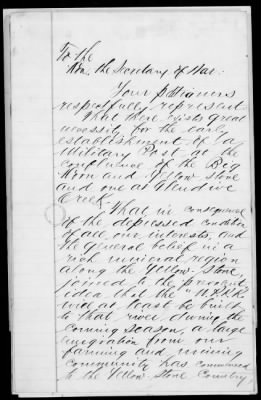 To the
Hon. the Secretary of War:
Your petitioners
respectfully represent
That there exists great
necessity for the early
establishment of a
Military Post at the
confluence of the Big
Horn and Yellow Stone
and one at Glendive
Creek.
That in consequence
of the depressed condition
of all our interests, and
the general belief in a
rich mineral region
along the Yellow Stone,
joined to the prevalent
idea that the "N.P.R.R."
will at least be built
to that river during the
coming season, a large
emigration from our
farming and mining
community has commenced
to the Yellow Stone Country